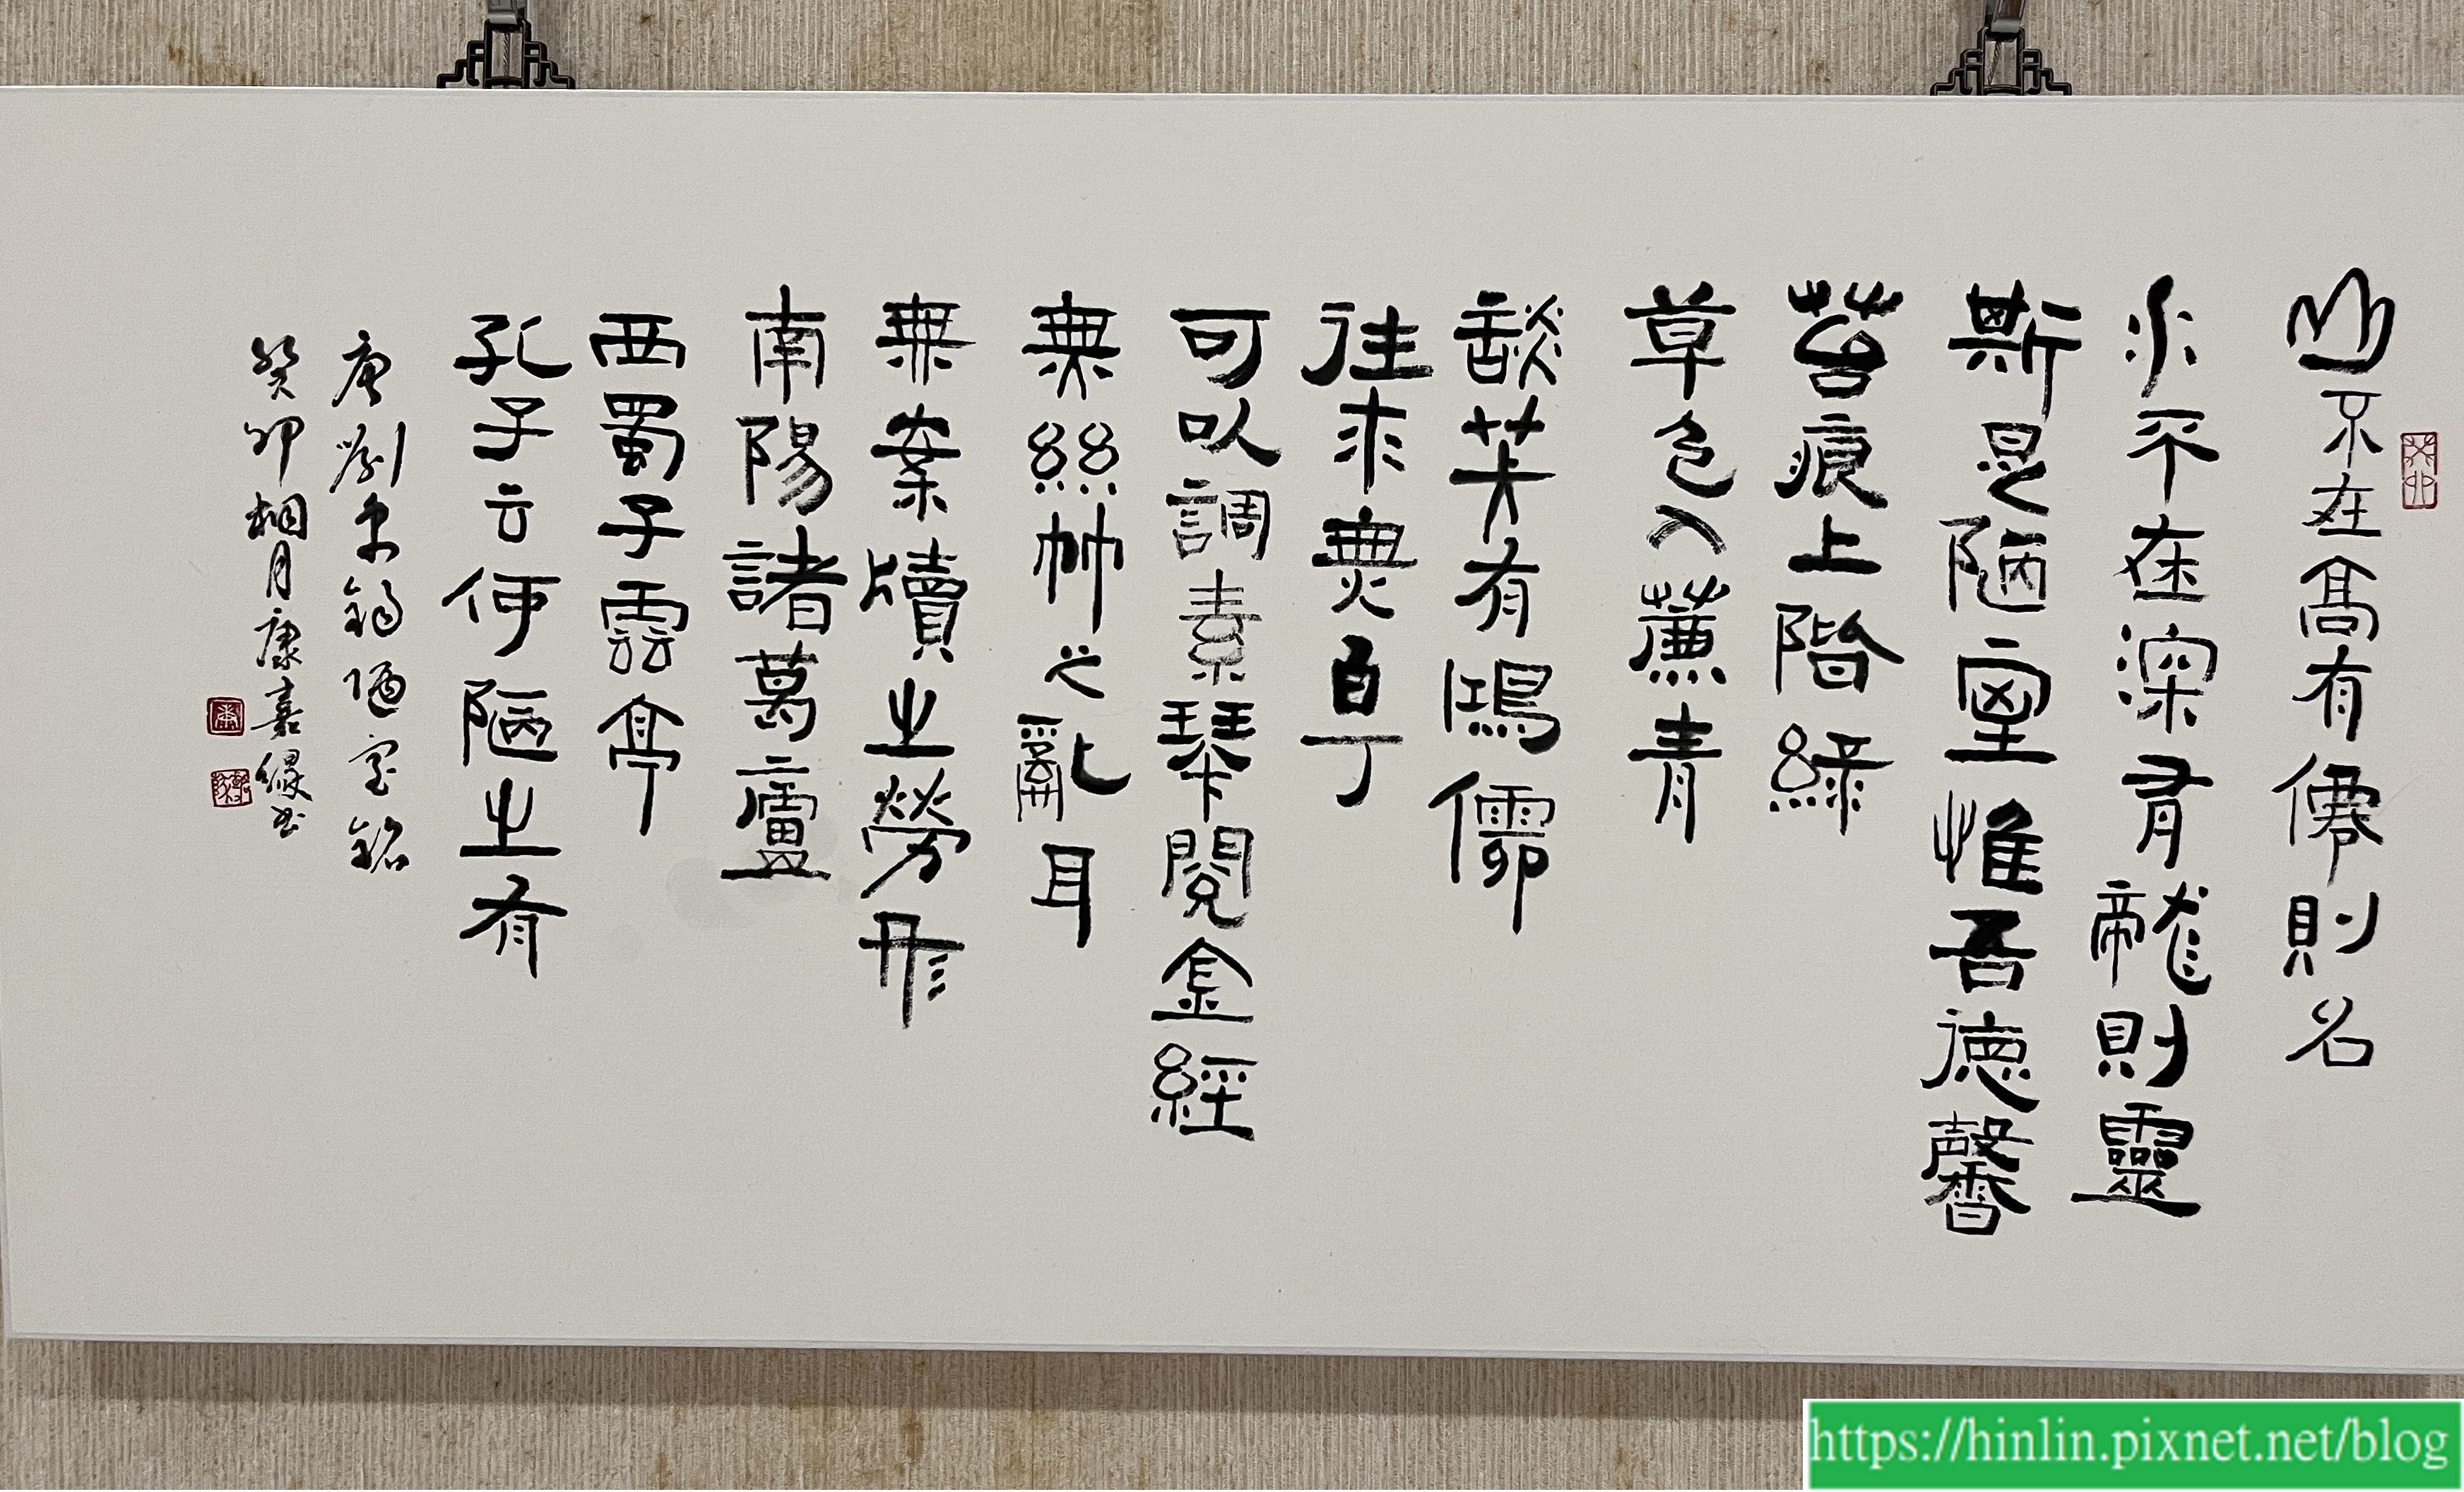 癸卯
山不在高有僊則名
水不在深有龍則靈
斯是陋室惟吾德馨
苔痕上階綠
草色入薕青
談笑有鴻儒
往來無白丁
可以調素琴閱金經
無絲竹之亂耳
無案牘之勞形
南陽諸葛廬
西蜀子雲亭
孔子云何陋之有
唐劉禹錫陋室銘
癸卯桐月康嘉書
https://hinlin.pixnet.net/blog